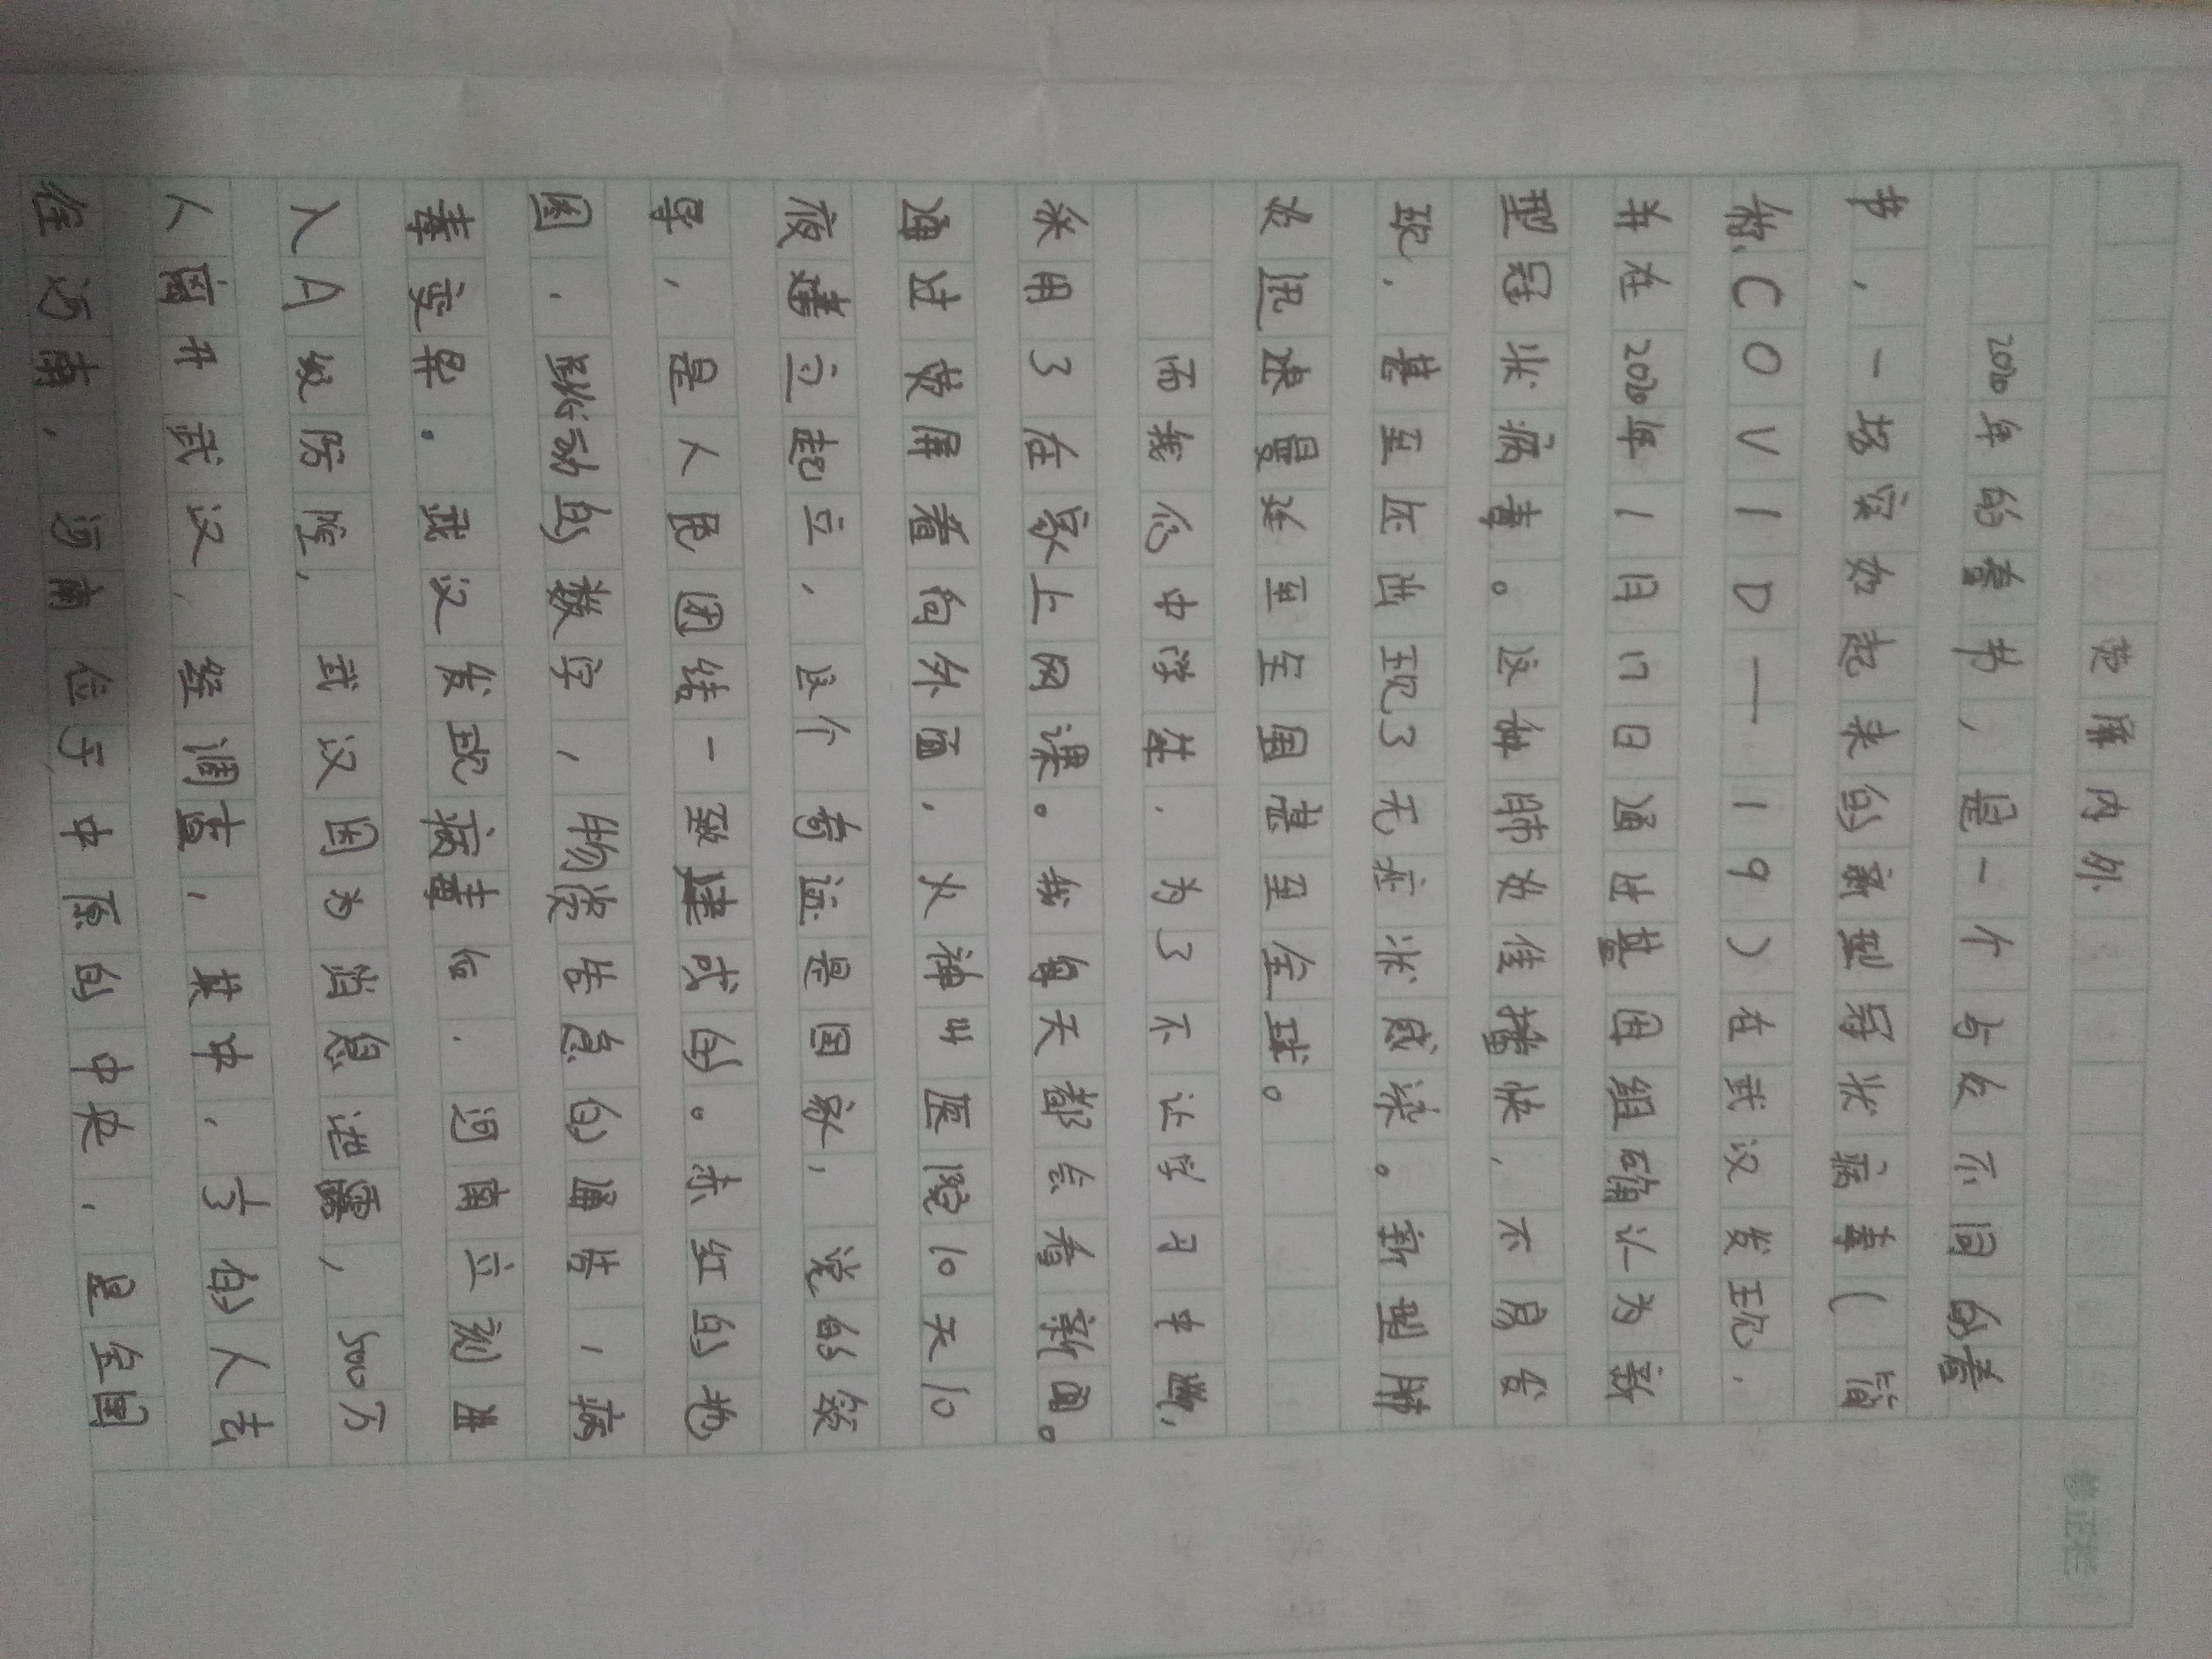 荧屏内外
2020年的春节，是一个与众不同的春
节，一场突如起来的新型冠状病毒（简
称COVID—19）在武汉发现，
并在2020年1月17日通过基因组确认为新
型冠状病毒。这种肺炎传播快，不易发
现，甚至还出现了无症状感染。新型肺
炎迅速蔓延至全国甚至全球。
而我们中学生，为了不让学习中断，
采用了在家上网课。我每天都会看新闻。
通过荧屏看向外面，火神山医院10天10
夜建立起立，这个奇迹是国家，党的领
导，是人民团结一致建成的。赤红的地
图，跳动的数字，物资告急的痛苦，病
毒变异。武汉发现病毒后，河南立刻进
入A级防控，武汉因为消息泄露，500万
人离开武汉，经调查，其中，的人去
往河南，河南位于中原的中央，是全国
修正栏